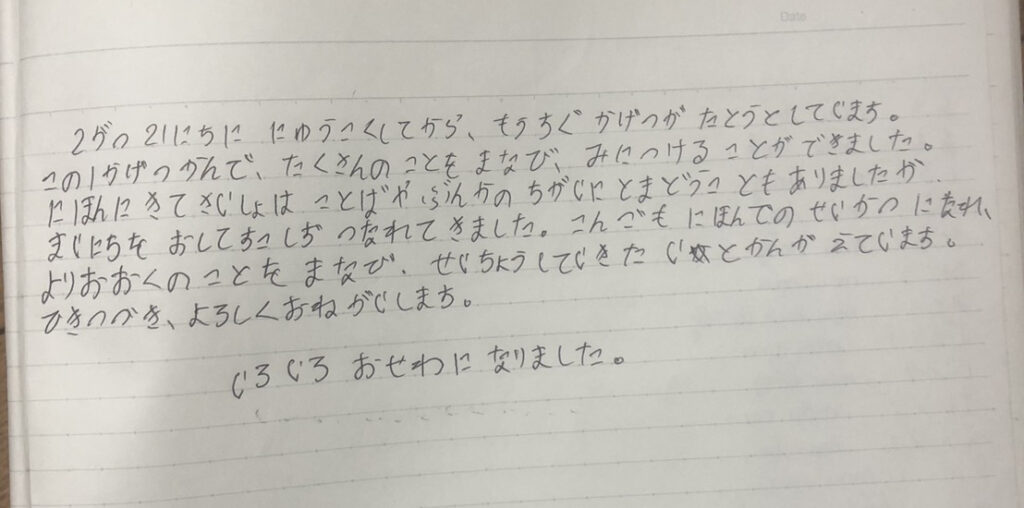 Date
2がつ 21にちに にゅうこくしてから、もうちぐ かげつが たとうとしてじまち。
この1かげつかんで、たくさんのことを まなび、みにつける ことが できました。
にほんに きて さじしょは ことばや ぶんかの ちがじに とまどうこ ともありましたが
まじにちを おしてすこしぢ つなれて きました。こんごも にほんでの せじかつ に なれ、
よりおおくのことを まなび、せじちょうしてじきた じ とかんが えてじまち。
ひきつづき、よろしくおねがじしまち。
じろじろ おせわに なりました。